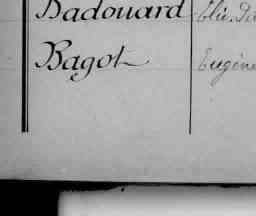 Badouard Elie
Bagot Eugène